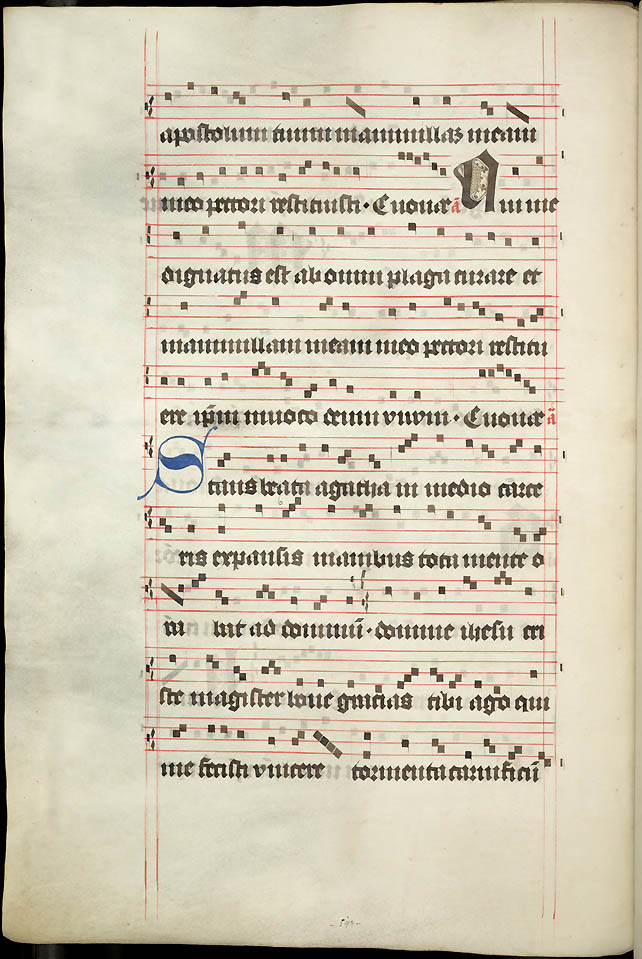 apostolum tuum mammillas meam
meo pectori restituisti · Euouae aā Qui me
dignatus est ab omni plaga curare et
mammillam meam meo pectori restitu
ere ip̄m inuoco deum viuum · Euouae aā
Stans beata agatha in medio carce
ris expansis manibus tota mente o
ra bat ad dominū · domine ihesu cri
ste magister bone gracias tibi ago qui
me fecisti vincere tormenta carnificū